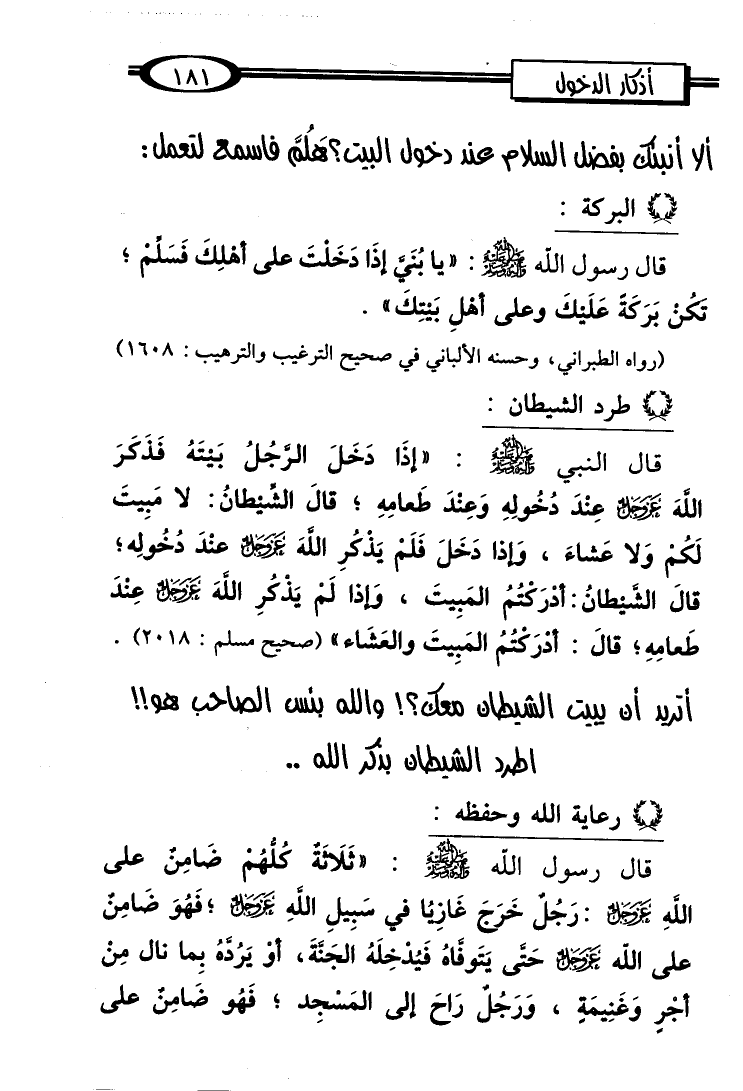 أذكار الدخول
١٨١
ألا أنبئك بفضل السلام عند دخول البيت؟ هَلُمَّ فاسمع لتعمل:
البركة :
قال رسول اللَّه ﷺ : «يا بُنَيَّ إذَا دَخَلْتَ على أهْلِكَ فَسَلِّمْ ؛
تَكُنْ بَرَكَةً عَلَيْكَ وعلى أهْلِ بَيْتِكَ» .
(رواه الطبراني، وحسنه الألباني في صحيح الترغيب والترهيب : ١٦٠٨)
طرد الشيطان :
قال النبي ﷺ : «إذَا دَخَلَ الرَّجُلُ بَيْتَهُ فَذَكَرَ
اللَّهَ عَزَّوَجَلَّ عِنْدَ دُخُولِهِ وَعِنْدَ طَعامِهِ ؛ قالَ الشَّيْطانُ: لا مَبِيتَ
لَكُمْ وَلا عَشاءَ ، وَإذا دَخَلَ فَلَمْ يَذْكُرِ اللَّهَ عَزَّوَجَلَّ عندَ دُخُولِه؛
قالَ الشَّيْطانُ: أدْرَكْتُمُ المَبِيتَ ، وَإذا لَمْ يَذْكُرِ اللَّهَ عَزَّوَجَلَّ عِنْدَ
طَعامِهِ؛ قالَ : أدْرَكْتُمُ المَبِيتَ والعَشَاء» (صحيح مسلم : ٢٠١٨) .
أتريد أن يبيت الشيطان معك؟! والله بئس الصاحب هو!!
اطرد الشيطان بذكر الله ..
رعاية الله وحفظه :
قال رسول اللَّه ﷺ : «ثَلَاثَةٌ كُلُّهُمْ ضَامِنٌ على
اللَّهِ عَزَّوَجَلَّ : رَجُلٌ خَرَجَ غَازِيًا في سَبِيلِ اللَّهِ عَزَّوَجَلَّ ؛ فَهُوَ ضَامِنٌ
على اللَّه عَزَّوَجَلَّ حَتَّى يَتَوفَّاهُ فَيُدْخِلَهُ الجَنَّةَ، أوْ يَرُدَّهُ بِما نال مِنْ
أجْرٍ وَغَنِيمَةٍ ، وَرَجُلٌ رَاحَ إلى المَسْجِد ؛ فَهُو ضَامِنٌ على